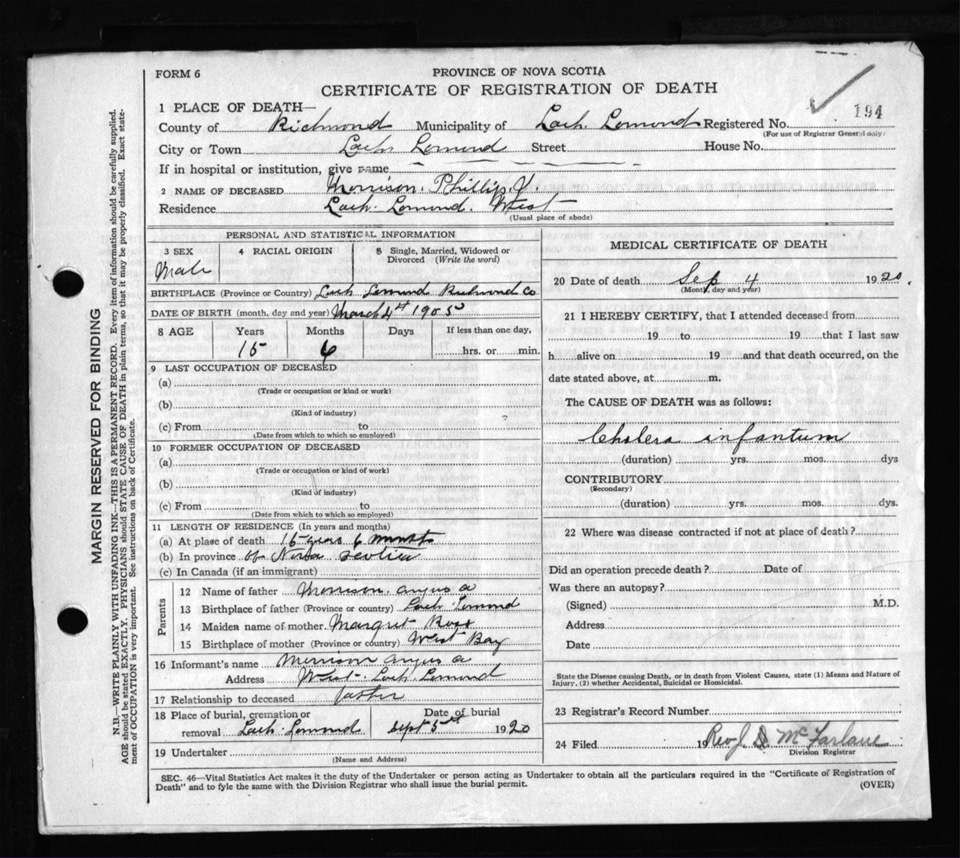 FORM 6
PROVINCE OF NOVA SCOTIA
CERTIFICATE OF REGISTRATION OF DEATH
194
1 PLACE OF DEATH—
County of Richmond Municipality of Loch Lomond Registered No.
(For use of Registrar General only)
City or Town Loch Lomond Street House No.
If in hospital or institution, give name
2 NAME OF DECEASED Morrison. Phillip J.
Residence Loch. Lomond. West
(Usual place of abode)
PERSONAL AND STATISTICAL INFORMATION
3 SEX 4 RACIAL ORIGIN 5 Single, Married, Widowed or Divorced (Write the word)
Male
BIRTHPLACE (Province or Country) Loch Lomond Richmond Co
DATE OF BIRTH (month, day and year) March 4th 1905
8 AGE Years Months Days If less than one day,
15 6 hrs. or min.
9 LAST OCCUPATION OF DECEASED
(a)
(Trade or occupation or kind or work)
(b)
(Kind of industry)
(c) From to
(Date from which to which so employed)
10 FORMER OCCUPATION OF DECEASED
(a)
(Trade or occupation or kind of work)
(b)
(Kind of industry)
(c) From to
(Date from which to which so employed)
11 LENGTH OF RESIDENCE (In years and months)
(a) At place of death 15 years 6 months
(b) In province of Nova Scotia
(c) In Canada (if an immigrant)
Parents
12 Name of father Morrison. Angus A
13 Birthplace of father (Province or country) Loch Lomond
14 Maiden name of mother Margret Ross
15 Birthplace of mother (Province or country) West Bay
16 Informant's name Morrison Angus A
Address West Loch Lomond
17 Relationship to deceased father
18 Place of burial, cremation or removal Loch Lomond
Date of burial
Sept 5th 1920
19 Undertaker
(Name and Address)
MEDICAL CERTIFICATE OF DEATH
20 Date of death Sep 4 1920.
(Month, day and year)
21 I HEREBY CERTIFY, that I attended deceased from
19 to 19 that I last saw
h alive on 19 and that death occurred, on the
date stated above, at m.
The CAUSE OF DEATH was as follows:
Cholera infantum
(duration) yrs. mos. dys
CONTRIBUTORY
(Secondary)
(duration) yrs. mos. dys.
22 Where was disease contracted if not at place of death?
Did an operation precede death? Date of
Was there an autopsy?
(Signed) M.D.
Address
Date
State the Disease causing Death, or in death from Violent Causes, state (1) Means and Nature of
Injury, (2) whether Accidental, Suicidal or Homicidal.
23 Registrar's Record Number
24 Filed 19 Rev J D McFarlane
Division Registrar
SEC. 46—Vital Statistics Act makes it the duty of the Undertaker or person acting as Undertaker to obtain all the particulars required in the "Certificate of Registration of
Death" and to fyle the same with the Division Registrar who shall issue the burial permit.
(OVER)
MARGIN RESERVED FOR BINDING
N.B.—WRITE PLAINLY WITH UNFADING INK—THIS IS A PERMANENT RECORD. Every item of information should be carefully supplied.
AGE should be stated EXACTLY. PHYSICIANS should STATE CAUSE OF DEATH in plain terms, so that it may be properly classified. Exact statement of OCCUPATION is very important. See instructions on back of Certificate.